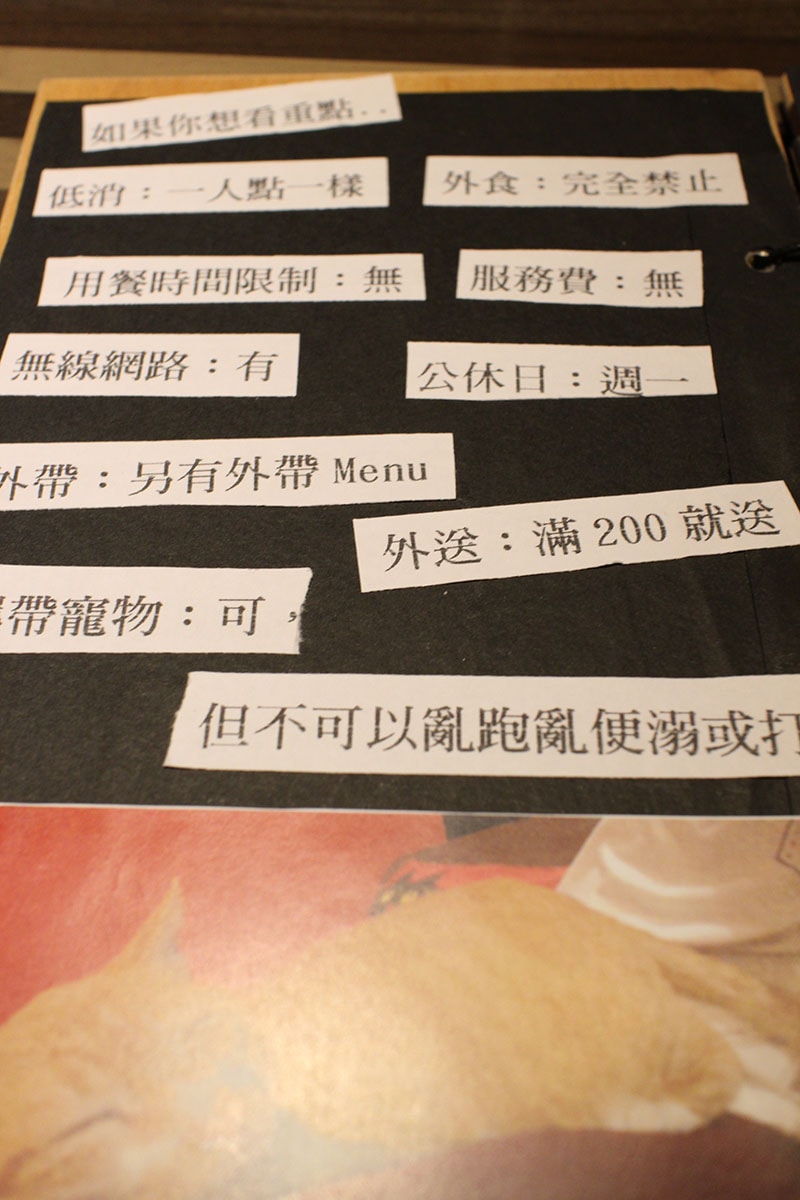 如果你想看重點..
低消：一人點一樣
外食：完全禁止
用餐時間限制：無
服務費：無
無線網路：有
公休日：週一
外帶：另有外帶 Menu
外送：滿 200 就送
帶寵物：可，
但不可以亂跑亂便溺或打